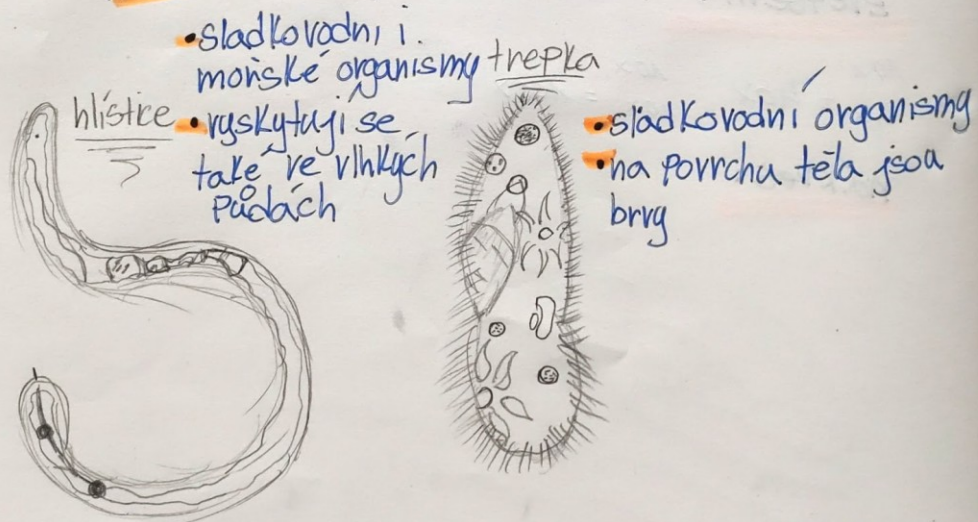 hlístice
• sladkovodní i
mořské organismy
• vyskytují se
také ve vlhkých
půdách
trepka
• sladkovodní organismy
• na povrchu těla jsou
brvy